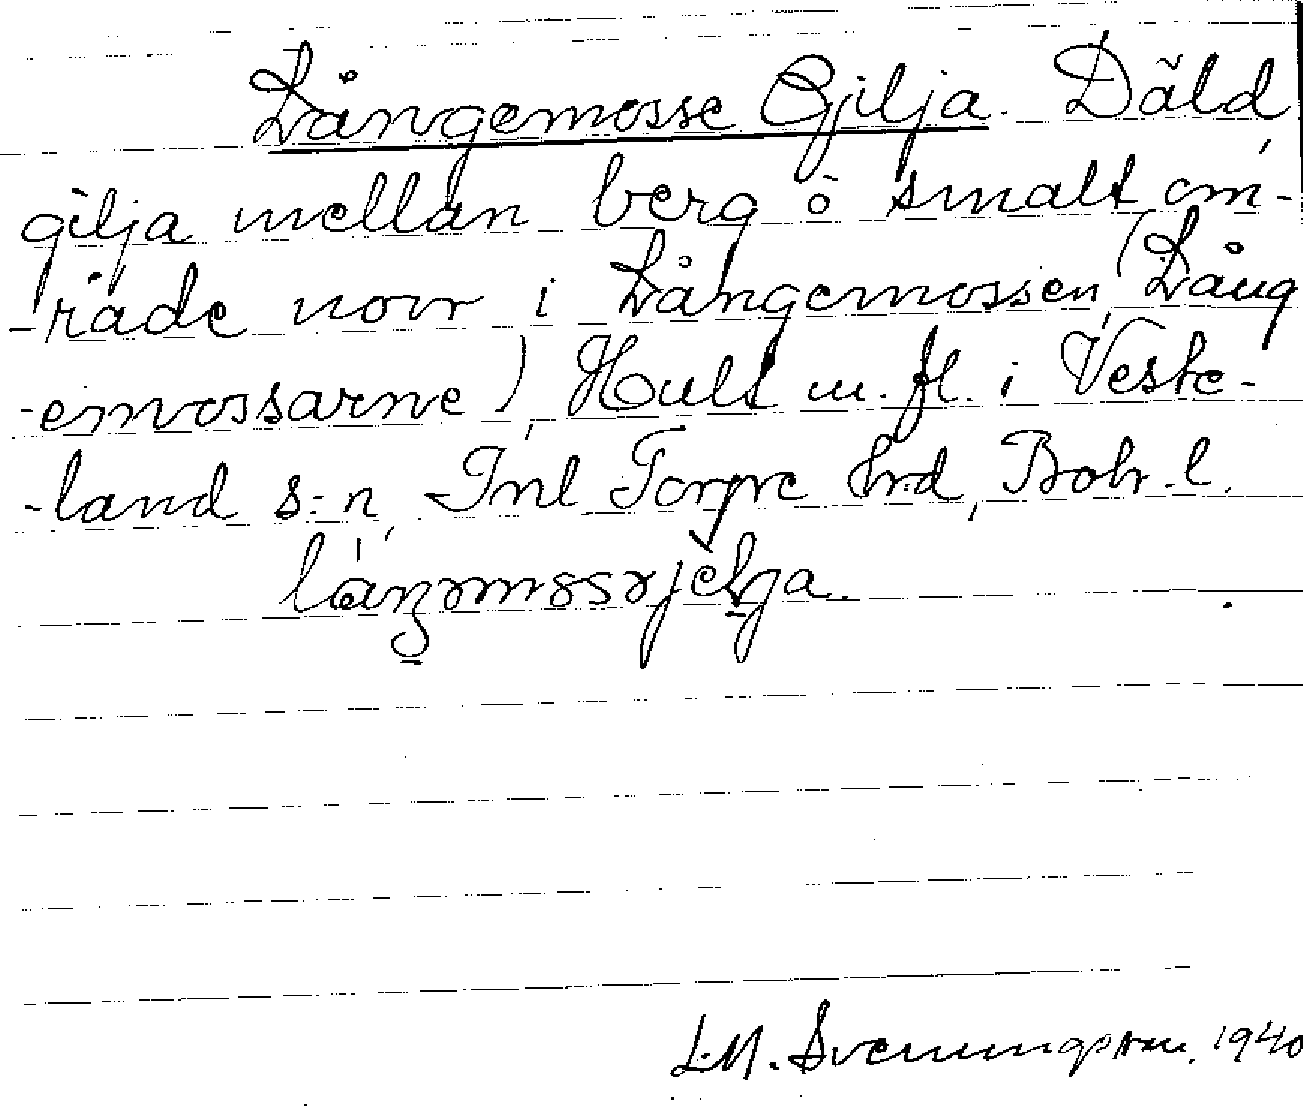 Långemosse Gilja. Däld,
gilja mellan berg ö smalt om-
-råde norr i Långemossen, (Lång
-emossarne), Hult m. fl. i Veste-
-land s:n, Inl Torpe hrd, Boh. l.
L.M. Svenungsson. 1940